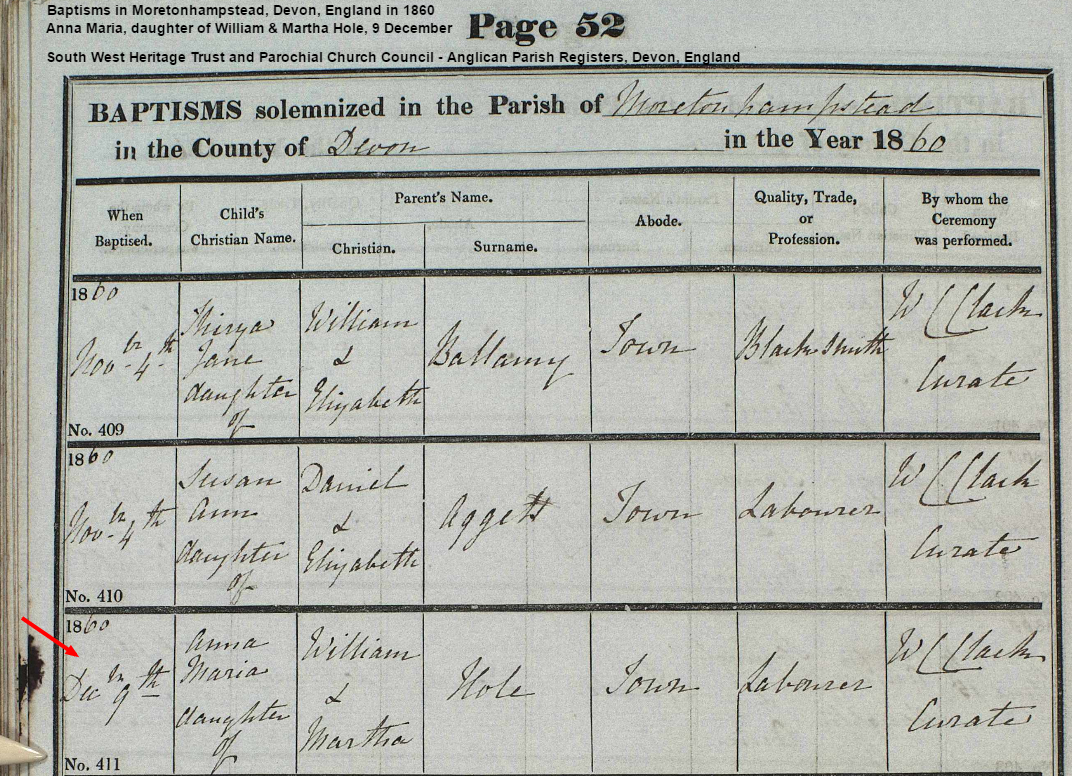 Baptisms in Moretonhampstead, Devon, England in 1860
Anna Maria, daughter of William & Martha Hole, 9 December
Page 52
South West Heritage Trust and Parochial Church Council - Anglican Parish Registers, Devon, England
BAPTISMS solemnized in the Parish of Moretonhampstead
in the County of Devon in the Year 1860
When Baptised.
Child's Christian Name.
Parent's Name.
Christian.
Surname.
Abode.
Quality, Trade, or Profession.
By whom the Ceremony was performed.
1860
Novbr 4th
Thirza
Jane
daughter
of
William
&
Elizabeth
Ballamy
Town
Blacksmith
W C Clack
Curate
No. 409
1860
Novbr 4th
Susan
Ann
daughter
of
Daniel
&
Elizabeth
Aggett
Town
Labourer
W C Clack
Curate
No. 410
1860
Decbr 9th
Anna
Maria
daughter
of
William
&
Martha
Hole
Town
Labourer
W C Clack
Curate
No. 411